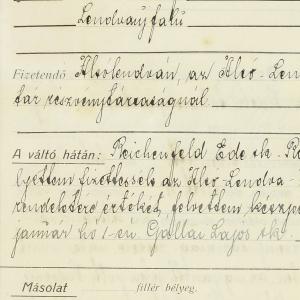 Lendványfalú
Fizetendő Alsólendván, az Alsó-Len
tár részvénytársaságnál.
A váltó hátán: Reichenfeld Ede sk.
lyettem fizettessék az Alsó Lendva
rendeletére értékét felvettem készpé
január hó 1-én Gallai Lajos sk.
Másolat fillér bélyeg.